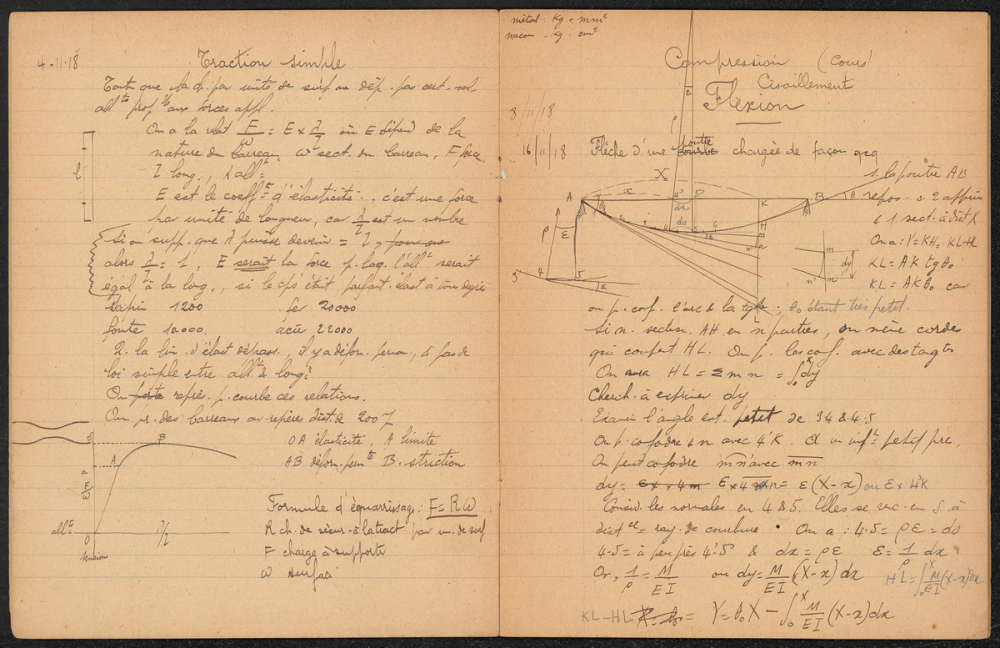 4-11-18
Traction simple
Tant que la ch. par unité de surf ne dép. pas cert. val.
all^ts prop^ls aux forces appl.
On a la relat F/ω = E × λ/l où E dépend de la
nature du barreau, ω sect. du barreau, F force
l long., λ all^t
l
E est le coeff^t d'élasticité, c'est une force
par unité de longueur, car λ/l est un nombre
Si on supp. que λ puisse devenir = l, pour que
alors λ/l = 1, E serait la force p. laq. l'all^t serait
égal à la long., si le cps était parfait. élast. à tous degrés
Sapin 1200 fer 20000
fonte 10.000 acier 22000
2. la lim. d'élast dépass. il y a défor. perm, & pas de
loi simple entre all^t & long^r
On peut représ. p. courbe ces relations.
On pr. des barreaux av repères dist. de 200
B
OA élasticité, A limite
A
AB déform. perm^te B. striction
F/ω
all^t
O
λ/l
Formule d'équarrissage: F = Rω
R ch. de sécur. à la tract par un. de surf
F charge à supporter
ω surface
métal: Kg - mm²
macon - kg. cm²
Compression (cours)
Cisaillement
8/11/18
Flexion
16/11/18
Flèche d'une courbe poutre chargée de façon qcq
X
A x 4' 5' K B
dx
ds
ρ ε
1. la poutre AB
repos. s. 2 appuis
& 1 sect. à dist X
On a: Y = KH = KL-HL
KL = AK tg θ₀
KL = AK θ₀ car
on p. cof. l'arc & la tgte; θ₀ étant très petit.
Si n. section. AH en n parties, on mène cordes
qui coupent HL. On p. les cof. avec des tangts
On aura HL = Σ mn = ∫₀^X dy
Cherch. à exprimer dy
Exami l'angle est. petit de 34 & 4.5
On p. cofodre 4n avec 4'K. α un inf^t petit pre.
On peut cofodre m'n' avec mn
dy = ε(X-x) ou ε × 4'K
Consid. les normales en 4 & 5. Elles se renc. en S à
dist ce = ray. de courbure. On a: 4.5 = ρε = ds
4-5 = à peu près 4'.5' & dx = ρε ε = 1/ρ dx
Or, 1/ρ = M/EI ou dy = M/EI (X-x) dx HL = ∫₀^X M/EI (X-x) dx
KL-HL = Y = θ₀X - ∫₀^X M/EI (X-x) dx